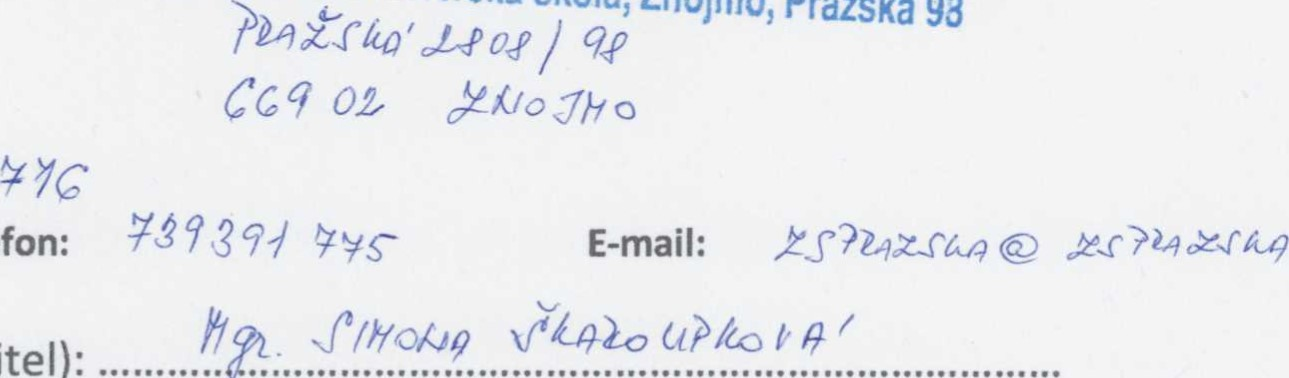 škola, Znojmo, Pražská 98
PRAŽSKÁ 2808/98
669 02 ZNOJMO
716
fon: 739391 775 E-mail: ZSPRAZSKA@ZSPRAZSKA
itel): Mgr. SIMONA ŠKAROUPKOVÁ